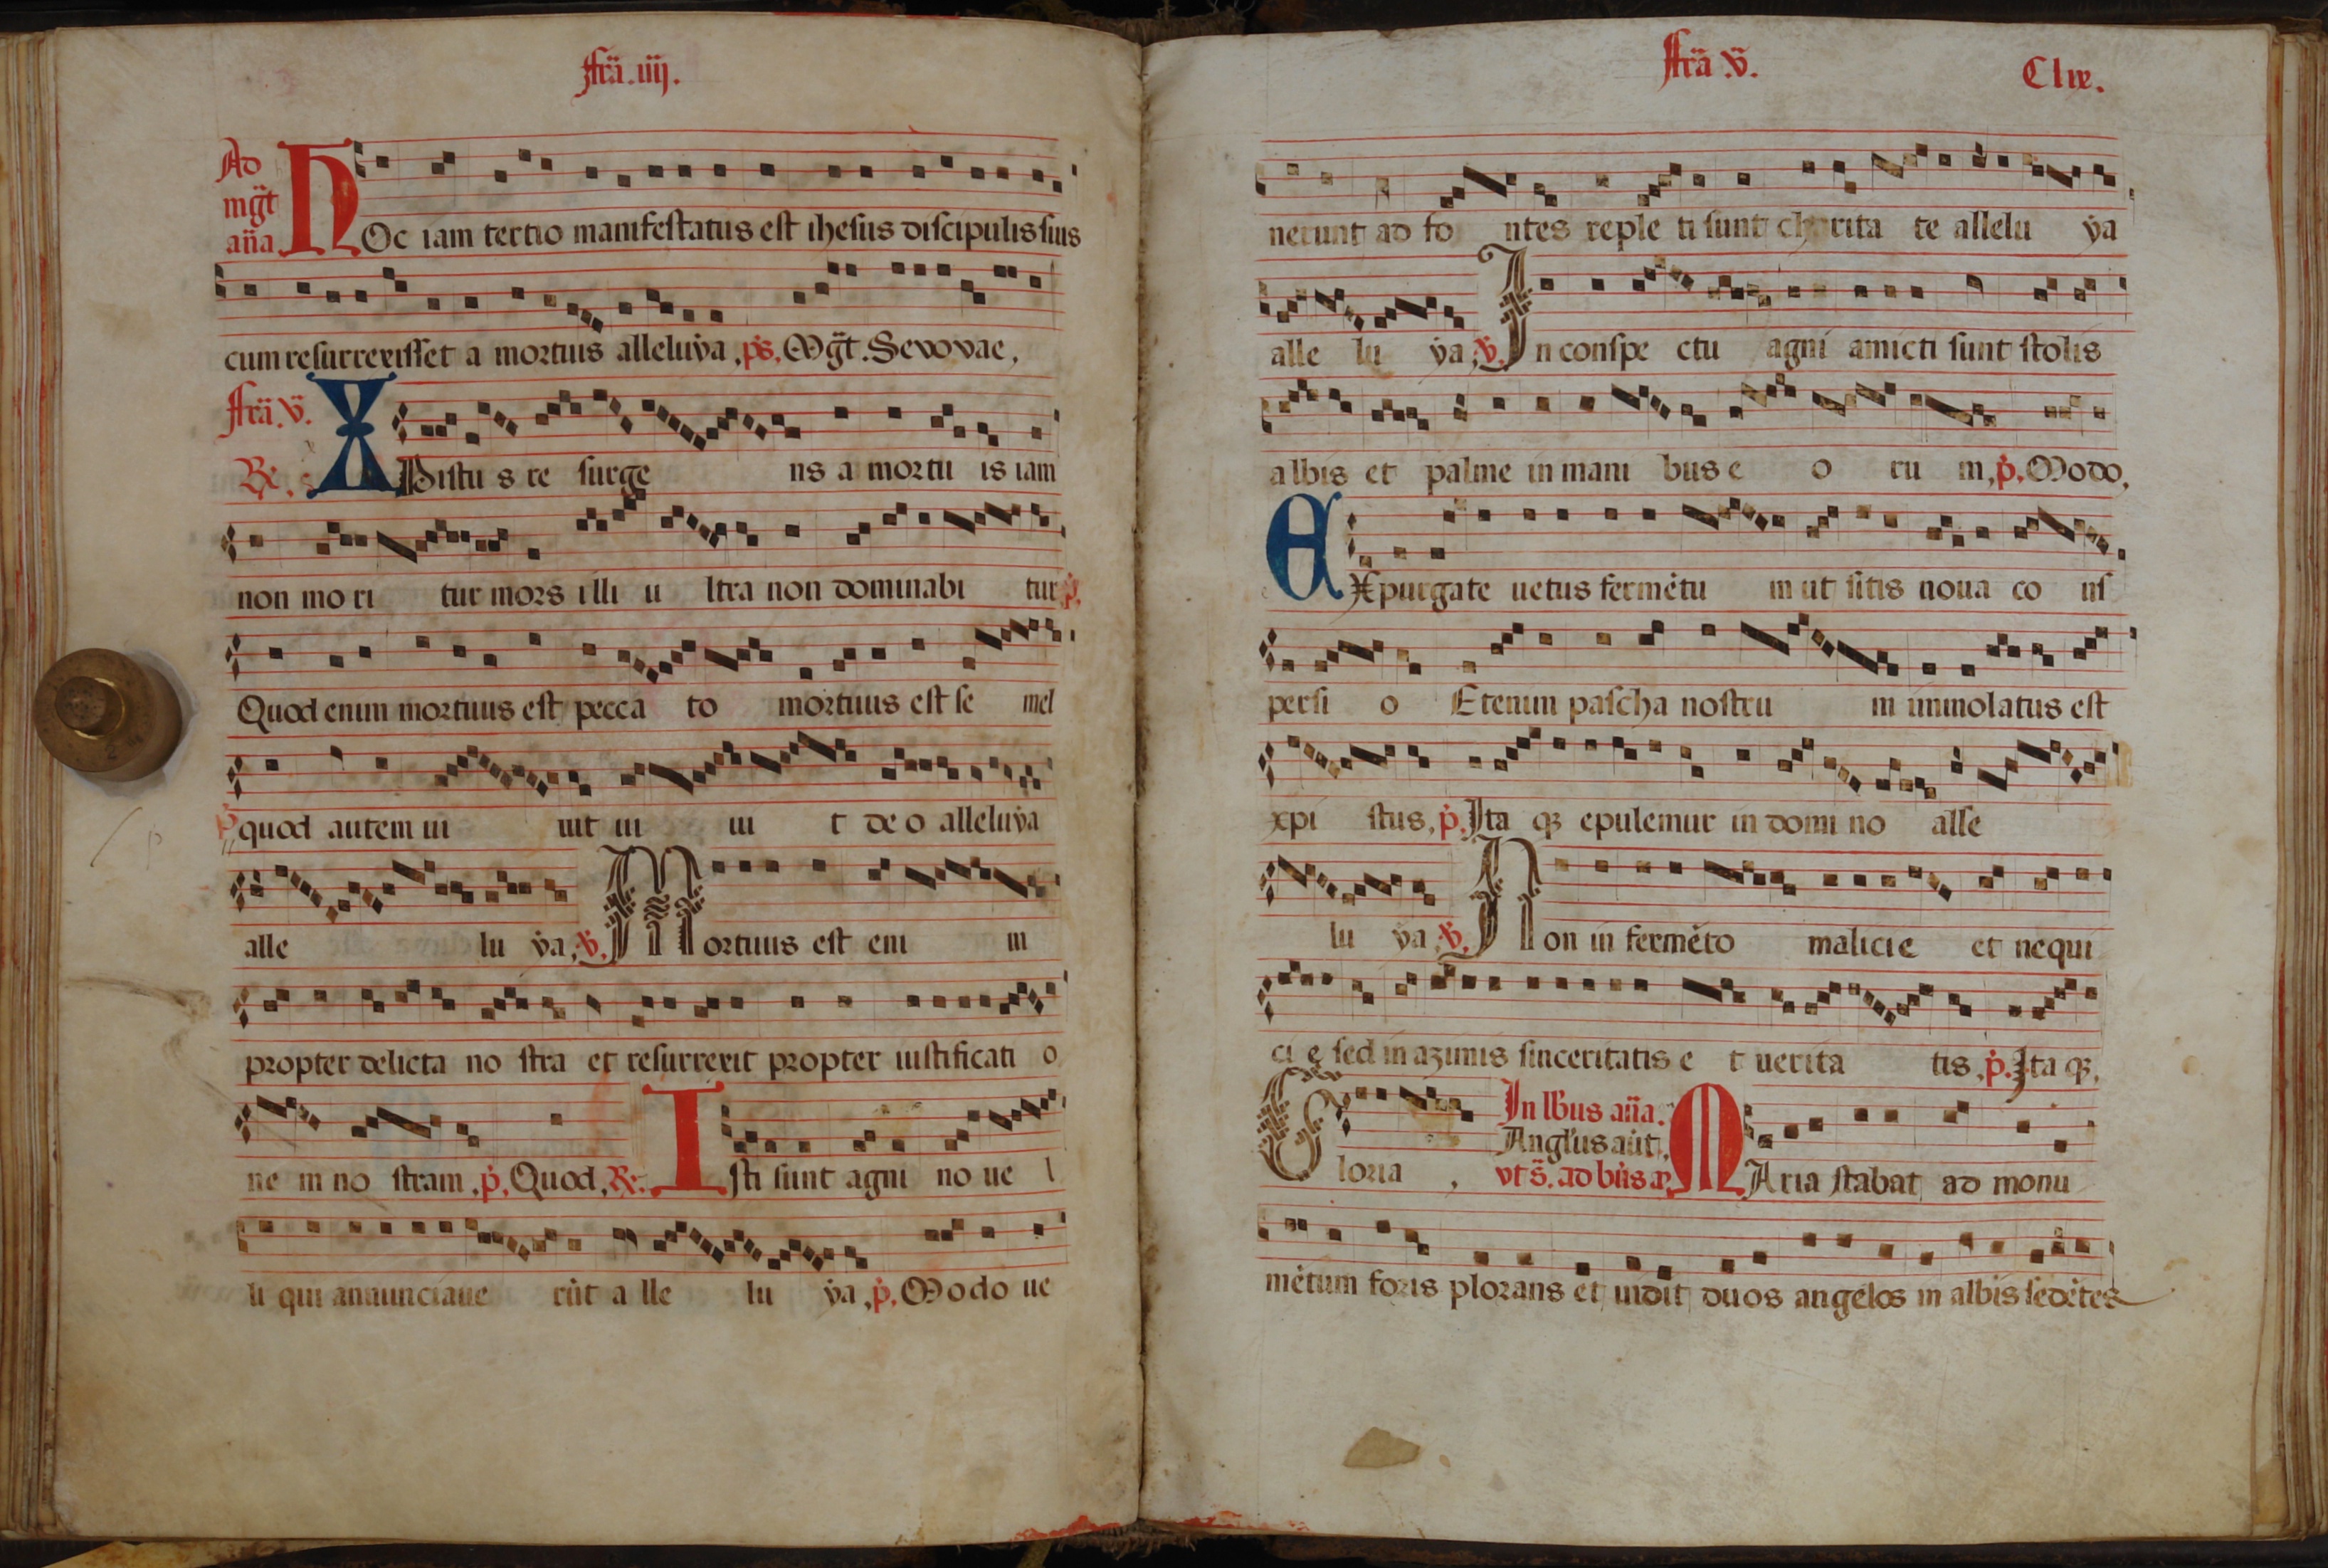 fr̃a. iiij.
Ad
mg̃t
aña
HOc iam tertio manifestatus est ihesus discipulis suis
cum resurrexisset a mortuis alleluya, ps̃. Mg̃t. Seuouae,
fr̃a. v̈.
R̷.
XPistu s re surge ns a mortu is iam
non mo ri tur mors illi u ltra non dominabi tur p̃.
Quod enim mortuus est pecca to mortuus est se mel
p̃ quod autem ui uit ui ui t de o alleluya
alle lu ya, v̷. Mortuus est eni m
propter delicta no stra et resurrexit propter iustificati o
ne m no stram, p̃. Quod, R̷. Isti sunt agni no ue l
li qui annunciaue rũt a lle lu ya, p̃. Modo ue
fr̃a v̈.
nerunt ad fo ntes reple ti sunt charita te allelu ya
alle lu ya, v̷. In conspe ctu agni amicti sunt stolis
albis et palme in mani bus e o ru m, p̃. Modo,
EXpurgate uetus fermẽtu m ut sitis noua co ns
persi o Etenim pascha nostru m immolatus est
xpi stus, p̃. Ita qꝫ epulemur in domi no alle
lu ya v̷. Non in fermẽto malicie et nequi
ci e sed in azimis sinceritatis e t uerita tis, p̃. Ita qꝫ,
Gloria ,
In lb̃us aña.
Angl̃us aũt,
vt s̃. ad
MAria stabat ad monu
mẽtum foris plorans et uidit duos angelos in albis sedẽtes